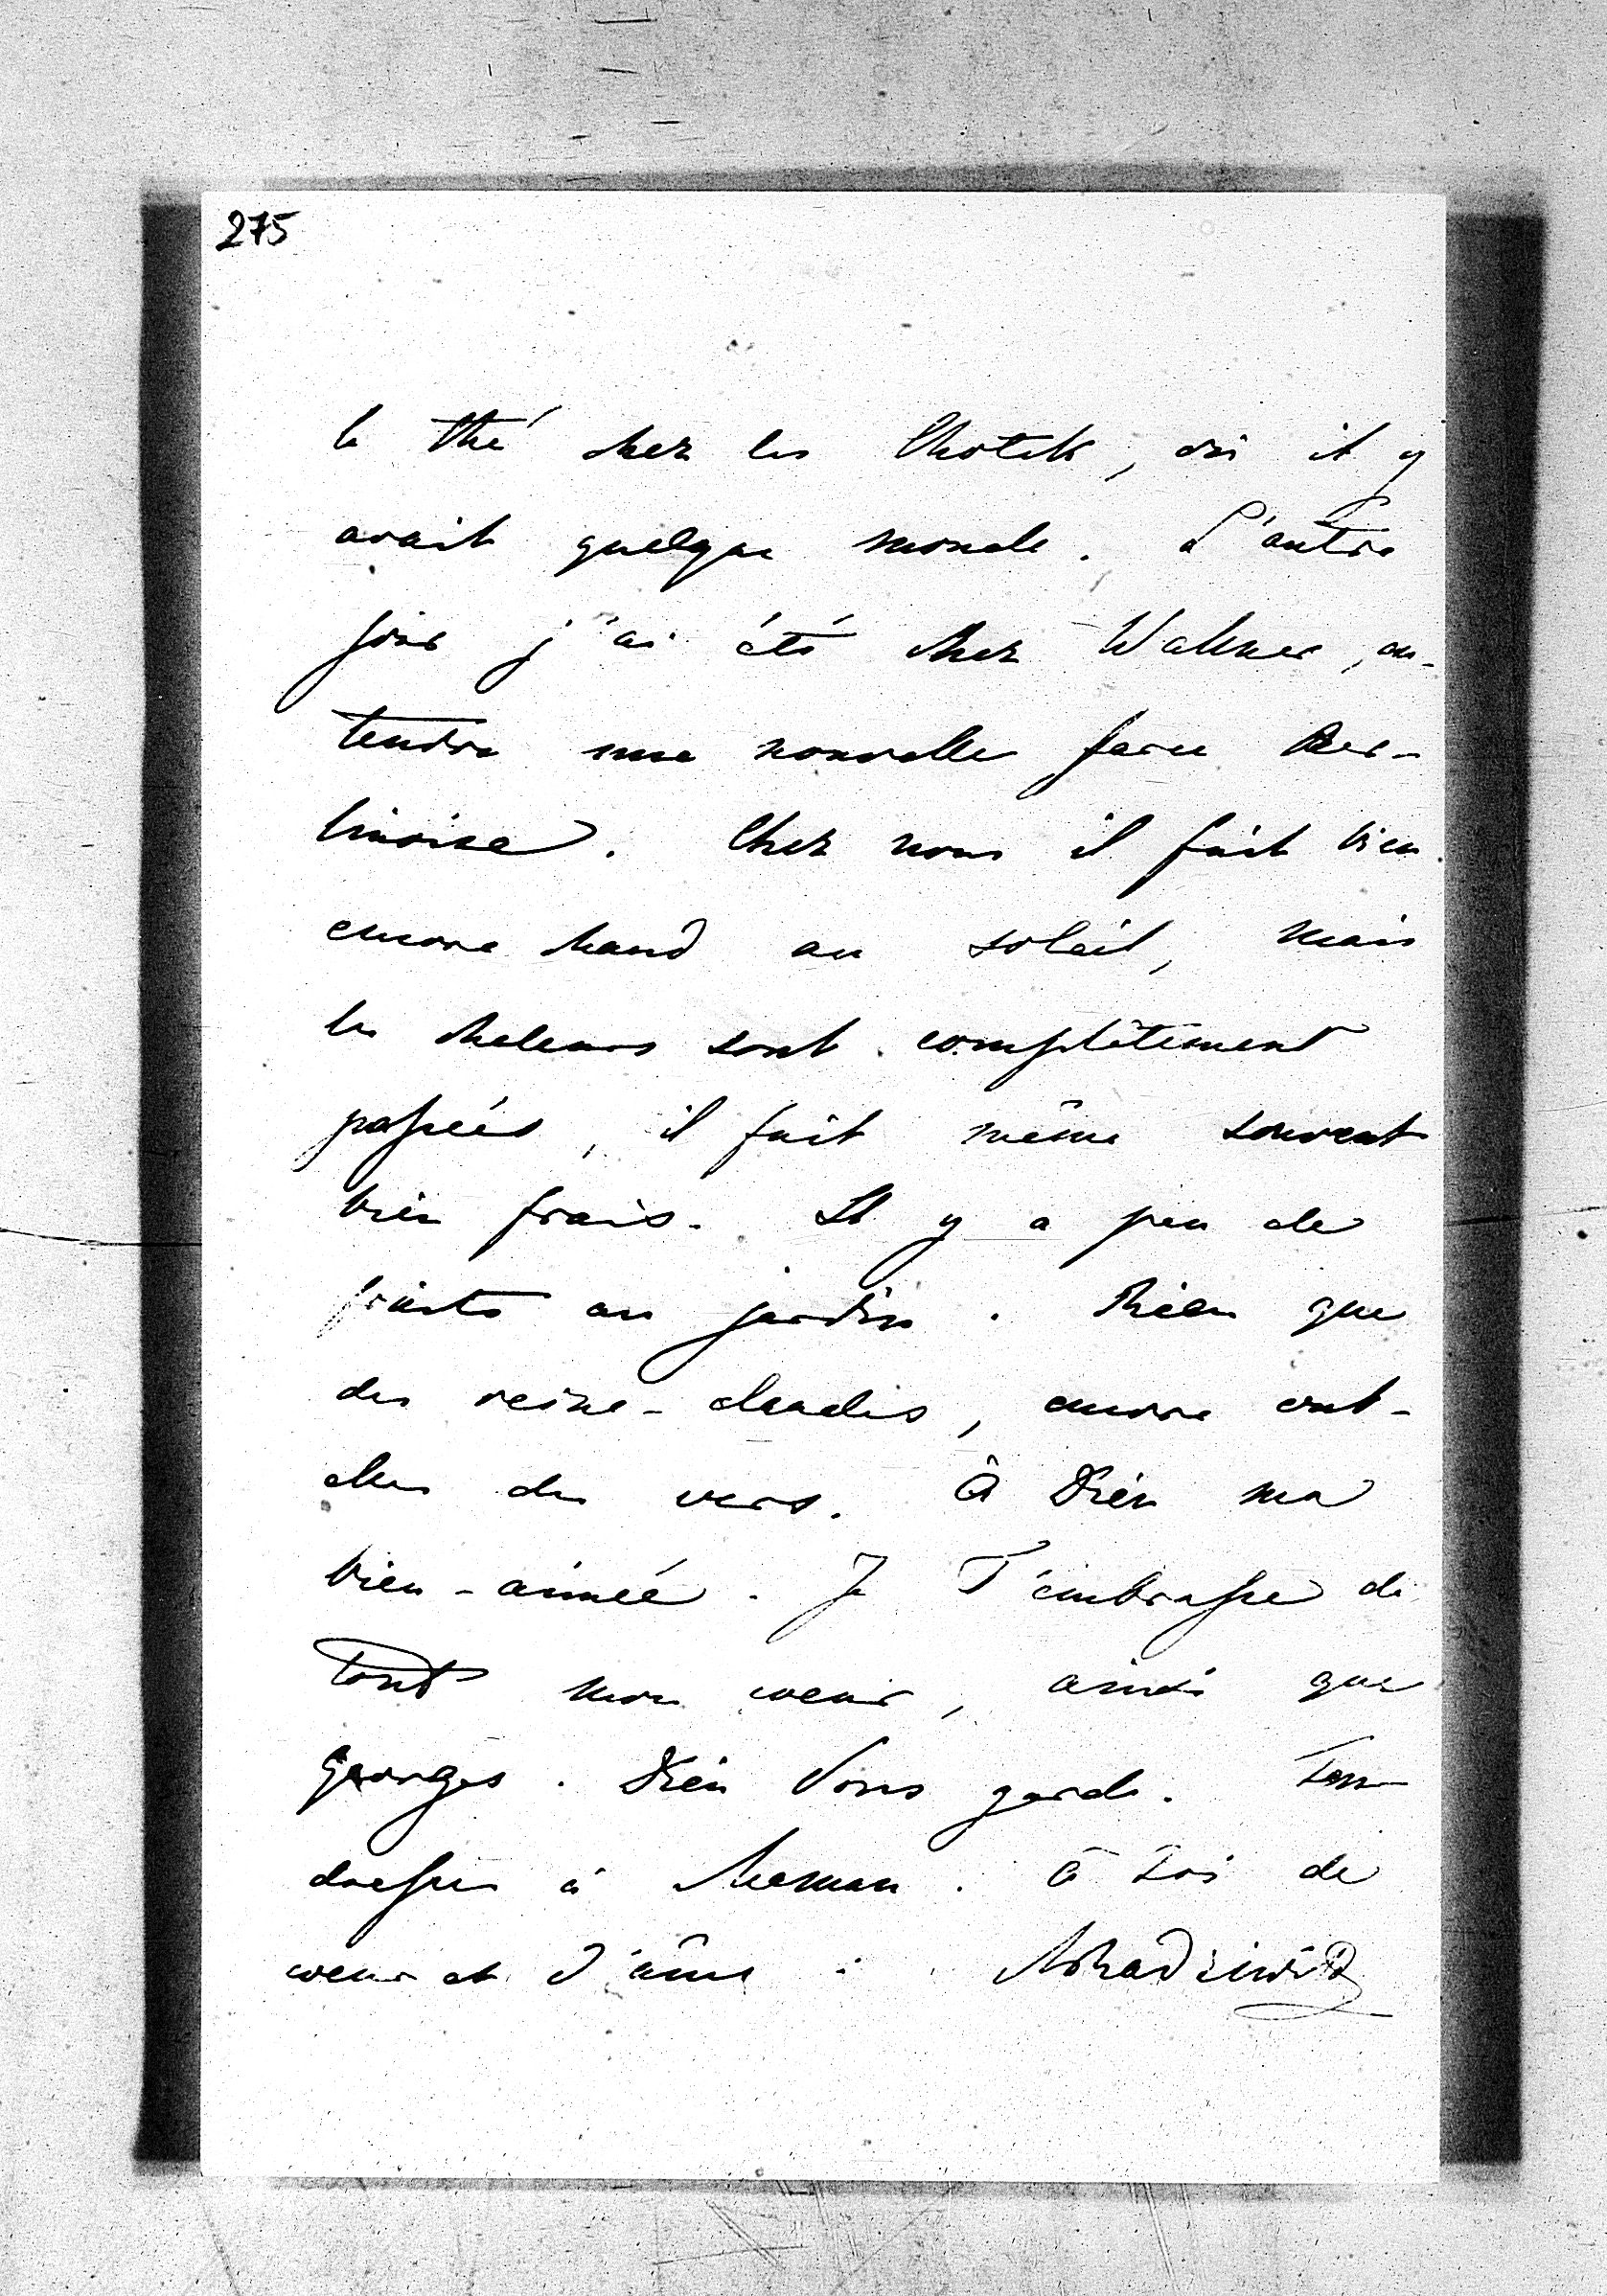 275
le thé chez les Chotek, où il y
avait quelque monde. L'autre
jour j'ai été chez Wallner, en-
tendre une nouvelle farce ber-
linoise. Chez nous il fait bien
encore chaud au soleil, mais
les chaleurs sont complètement
passées, il fait même souvent
bien frais. Il y a peu de
fruits au jardin. Rien que
des reine-claudes, encore ont-
elles des vers. À Dieu ma
bien-aimée. Je T'embrasse de
tout mon coeur, ainsi que
Georges. Dieu Vous garde. Ten-
dresses à Maman. À Toi de
coeur et d'âme